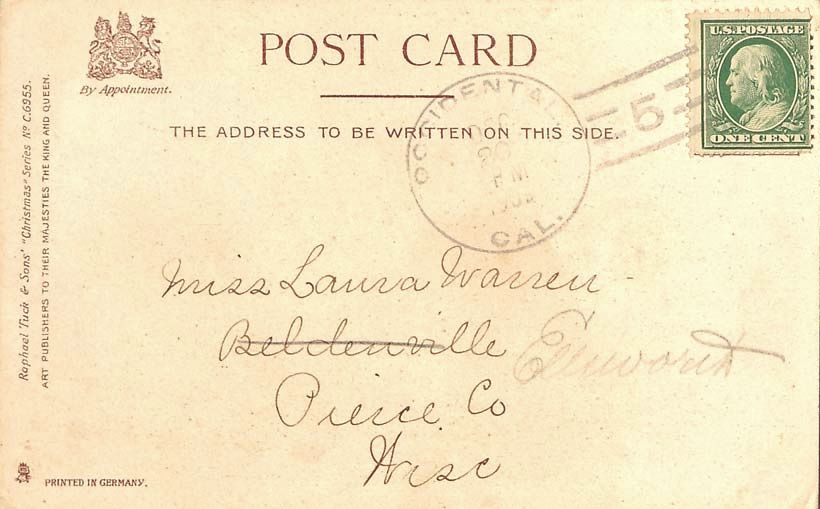 By Appointment.
POST CARD
U.S. POSTAGE
ONE CENT
THE ADDRESS TO BE WRITTEN ON THIS SIDE.
OCCIDENTAL
DEC
20
PM
CAL.
5
Raphael Tuck & Sons' "Christmas" Series Nº C.6955.
ART PUBLISHERS TO THEIR MAJESTIES THE KING AND QUEEN.
Miss Laura Warren
Beldenville Ellsworth
Pierce Co
Wisc
PRINTED IN GERMANY.